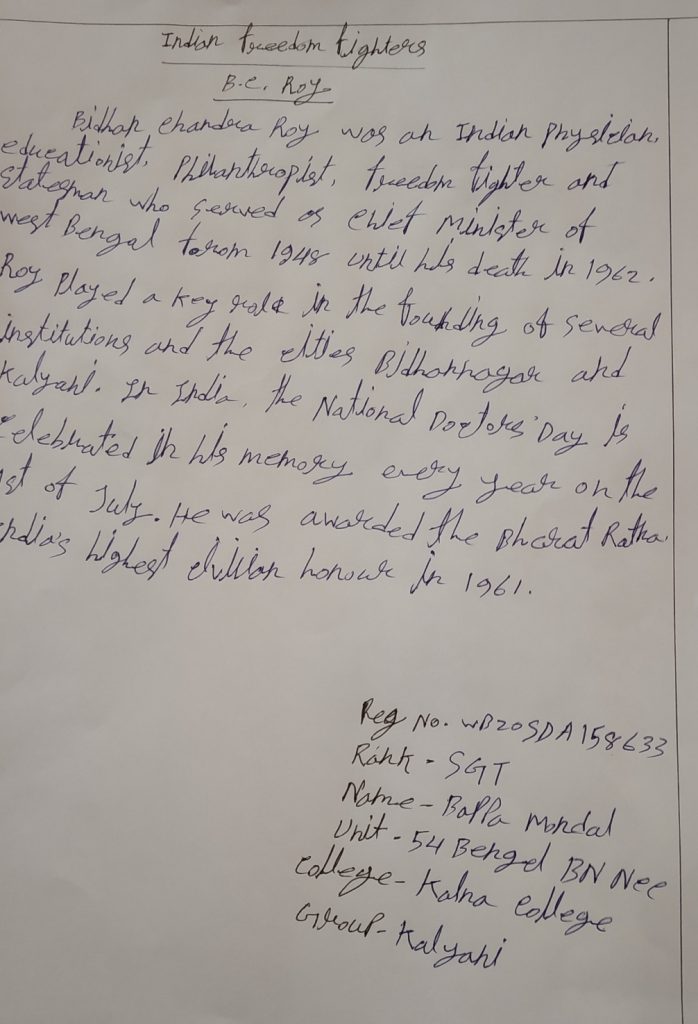 Indian freedom fighters
B.C. Roy
Bidhan Chandra Roy was an Indian physician,
educationist, Philanthropist, freedom fighter and
statesman who served as chief Minister of
west Bengal from 1948 until his death in 1962.
Roy Played a key role in the founding of several
institutions and the cities Bidhannagar and
Kalyani. In India, the National Doctors' Day is
celebrated in his memory every year on the
1st of July. He was awarded the Bharat Ratna.
India's highest civilian honour in 1961.
Reg No. WB20SDA158633
Rank - SGT
Name - Bappa Mondal
Unit - 54 Bengal BN Ncc
College - Kalna College
Group - Kalyani